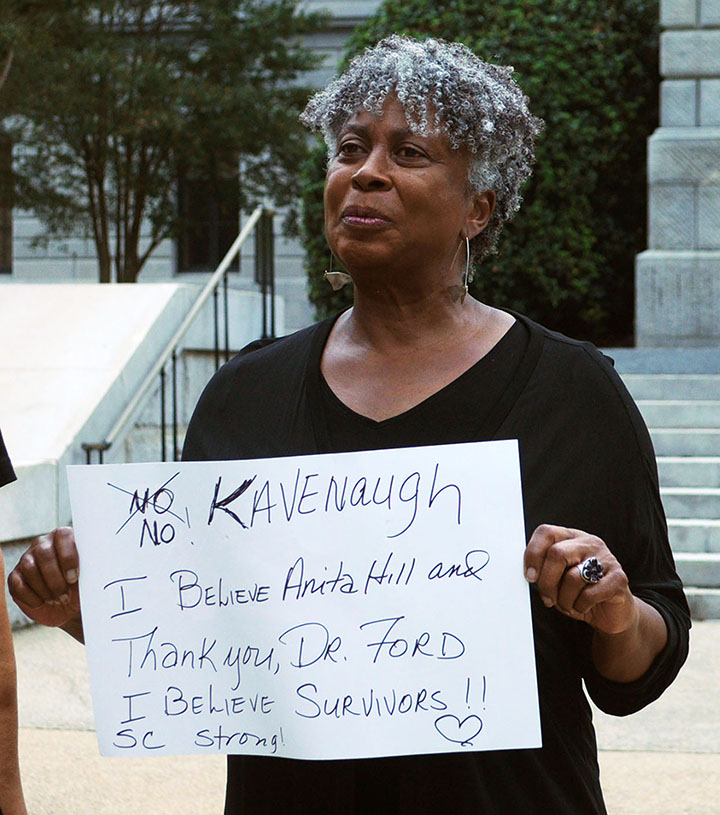 NO KAVENAugh
NO!
I BELIEVE Anita Hill and
Thank you, DR. FORD
I BELIEVE SURVIVORS!!
SC strong! ♡